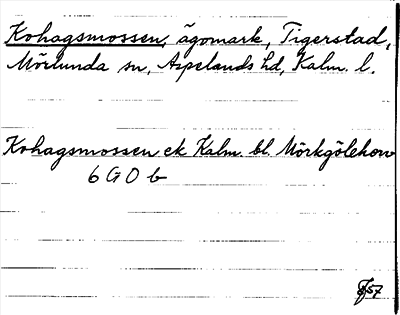 Kohagsmossen, ägomark, Tigerstad,
Mörlunda sn, Aspelands hd, Kalm. l.
Kohagsmossen ek Kalm. bl. Mörkgölehorv
6 G 0 b
57